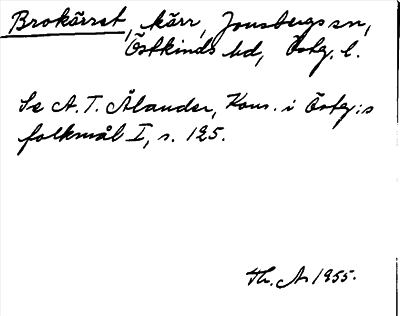 Brokärret, kärr, Jonsbergs sn,
Östkinds hd, Östg. l.
Se A. T. Ålander, Kons. i Östg:s
folkmål I, s. 125.
Th. A. 1955.